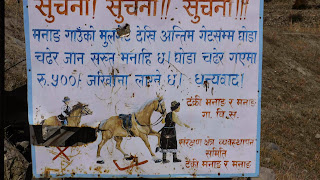 सुचना! सुचना! सुचना!!!
मनाङ गाउँको मुलगेट देखि अन्तिम गेटसम्म घोडा
चढेर जान सख्त मनाहि छ। घोडा चढेर गएमा
रु.५००/- जरिवाना लाग्ने छ। धन्यवाद।
टंकी मनाङ र मनाङ
गा. वि. स.
संरक्षण क्षेत्र व्यवस्थापन
समिति
टंकी मनाङ र मनाङ